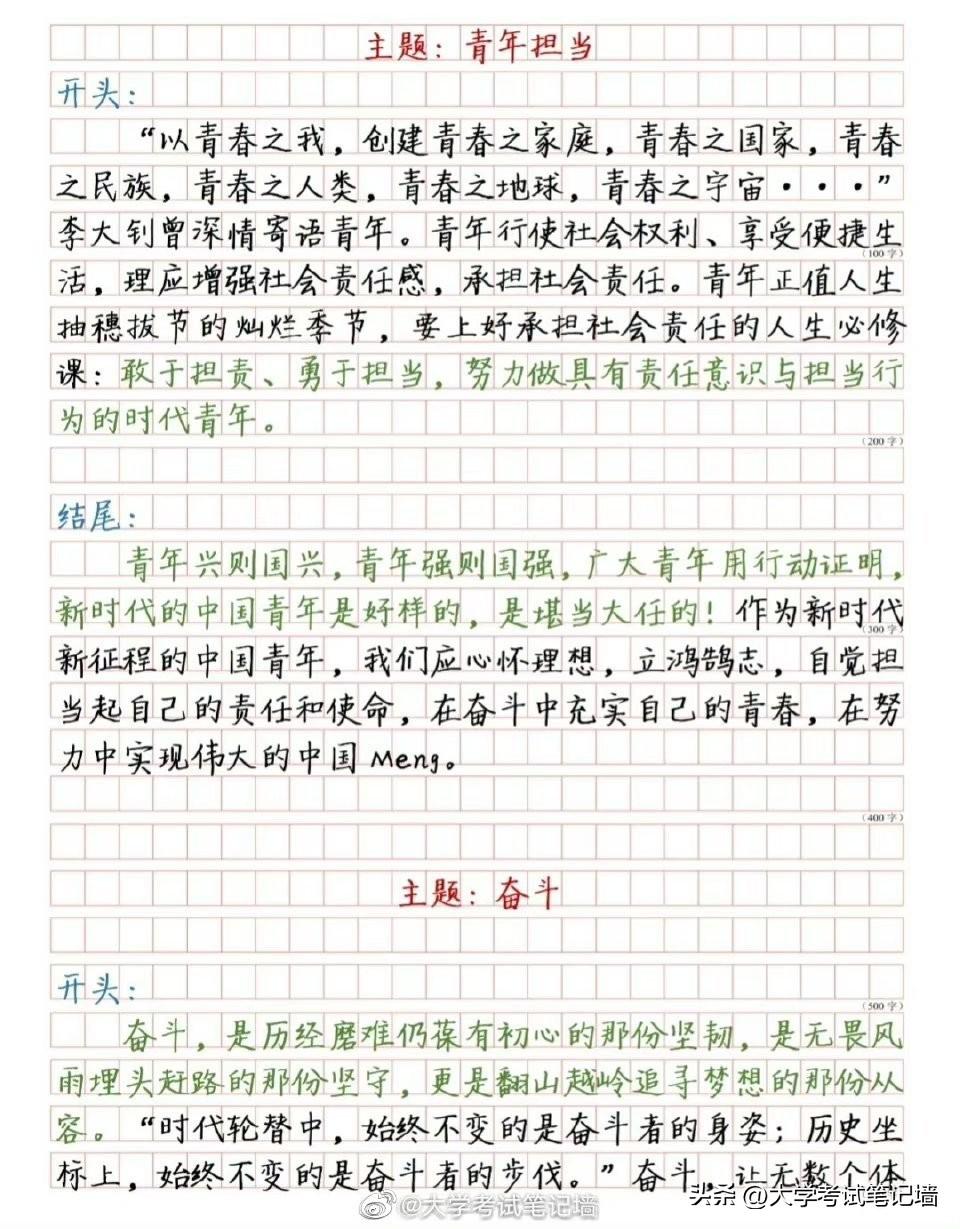 主题：青年担当
开头：
“以青春之我，创建青春之家庭，青春之国家，青春
之民族，青春之人类，青春之地球，青春之宇宙···”
李大钊曾深情寄语青年。青年行使社会权利、享受便捷生
（100字）
活，理应增强社会责任感，承担社会责任。青年正值人生
抽穗拔节的灿烂季节，要上好承担社会责任的人生必修
课：敢于担责、勇于担当，努力做具有责任意识与担当行
为的时代青年。
（200字）
结尾：
青年兴则国兴，青年强则国强，广大青年用行动证明，
新时代的中国青年是好样的，是堪当大任的！作为新时代
（300字）
新征程的中国青年，我们应心怀理想，立鸿鹄志，自觉担
当起自己的责任和使命，在奋斗中充实自己的青春，在努
力中实现伟大的中国Meng。
（400字）
主题：奋斗
开头：
（500字）
奋斗，是历经磨难仍葆有初心的那份坚韧，是无畏风
雨埋头赶路的那份坚守，更是翻山越岭追寻梦想的那份从
容。“时代轮替中，始终不变的是奋斗者的身姿；历史坐
标上，始终不变的是奋斗者的步伐。”奋斗，让无数个体
@大学考试笔记墙
头杀 @大学考试笔记墙